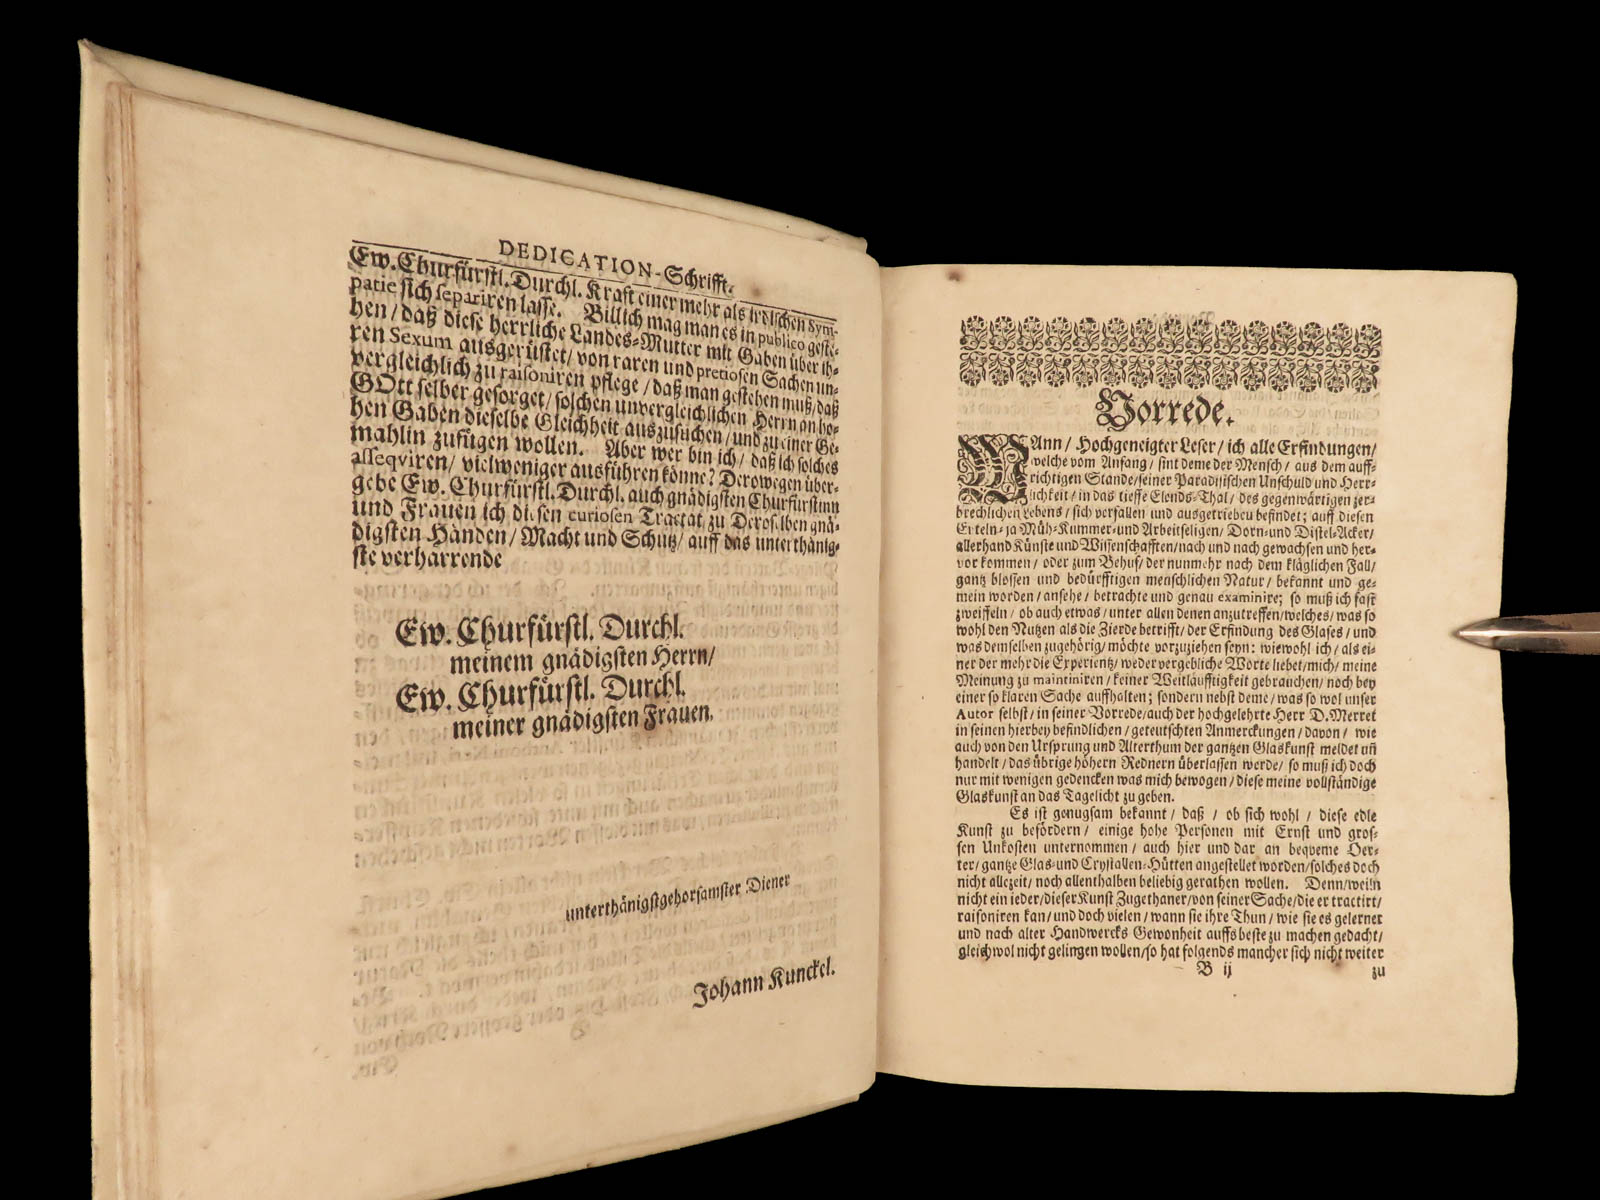 DEDICATION-Schrifft.
Ew. Churfürstl. Durchl. Krafft einer mehr als irdischen Sym-
patie sich separiren lasse. Billich mag man es in publico geste-
hen / daß diese herrliche Landes-Mutter mit Gaben über ih-
ren Sexum ausgerüstet / von raren und pretiosen Sachen un-
vergleichlich zu raisoniren pflege / daß man gestehen muß / daß
GOtt selber gesorget / solchen unvergleichlichen Herrn an ho-
hen Gaben dieselbe Gleichheit auszusuchen / und zu einer Ge-
mahlin zufügen wollen. Aber wer bin ich / daß ich solches
asseqviren / vielweniger ausführen könne? Derowegen über-
gebe Ew. Churfürstl. Durchl. auch gnädigsten Churfürstinn
und Frauen ich diesen curiosen Tractat zu Deroselben gnä-
digsten Händen / Macht und Schutz / auff das unterthänig-
ste verharrende
Ew. Churfürstl. Durchl.
meinem gnädigsten Herrn /
Ew. Churfürstl. Durchl.
meiner gnädigsten Frauen.
unterthänigstgehorsamster Diener
Johann Kunckel.
Vorrede.
WAnn / Hochgeneigter Leser / ich alle Erfindungen /
welche vom Anfang / sint deme der Mensch / aus dem auff-
richtigen Stande / seiner Paradisischen Unschuld und Herr-
lichkeit / in das tieffe Elends-Thal / des gegenwärtigen zer-
brechlichen Lebens / sich verfallen und ausgetrieben befindet; auff diesen
Eiteln- ja Müh-Kummer- und Arbeitseligen / Dorn- und Distel-Acker /
allerhand Künste und Wissenschafften / nach und nach gewachsen und her-
vor kommen / oder zum Behuf / der nunmehr nach dem kläglichen Fall /
gantz blossen und bedürfftigen menschlichen Natur / bekannt und ge-
mein worden / ansehe / betrachte und genau examinire; so muß ich fast
zweiffeln / ob auch etwas / unter allen denen anzutreffen / welches / was so
wohl den Nutzen als die Zierde betrifft / der Erfindung des Glases / und
was demselben zugehörig / möchte vorzuziehen seyn: wiewohl ich / als ei-
ner der mehr die Experientz / weder vergebliche Worte liebet / mich / meine
Meinung zu maintiniren / keiner Weitläufftigkeit gebrauchen / noch bey
einer so klaren Sache auffhalten; sondern nebst deme / was so wol unser
Autor selbst / in seiner Vorrede / auch der hochgelehrte Herr D. Merret
in seinen hierbey befindlichen / geteutschten Anmerckungen / davon / wie
auch von den Ursprung und Alterthum der gantzen Glaskunst meldet uñ
handelt / das übrige höhern Rednern überlassen werde / so muß ich doch
nur mit wenigen gedencken was mich bewogen / diese meine vollständige
Glaskunst an das Tagelicht zu geben.
Es ist genugsam bekannt / daß / ob sich wohl / diese edle
Kunst zu befördern / einige hohe Personen mit Ernst und gros-
sen Unkosten unternommen / auch hier und dar an beqveme Oer-
ter / gantze Glas- und Crystallen-Hütten angestellet worden / solches doch
nicht allezeit / noch allenthalben beliebig gerathen wollen. Denn / weiln
nicht ein ieder / dieser Kunst Zugethaner / von seiner Sache / die er tractirt /
raisoniren kan / und doch vielen / wann sie ihre Thun / wie sie es gelernet
und nach alter Handwercks Gewonheit auffs beste zu machen gedacht /
gleichwol nicht gelingen wollen / so hat folgends mancher sich nicht weiter
B ij zu